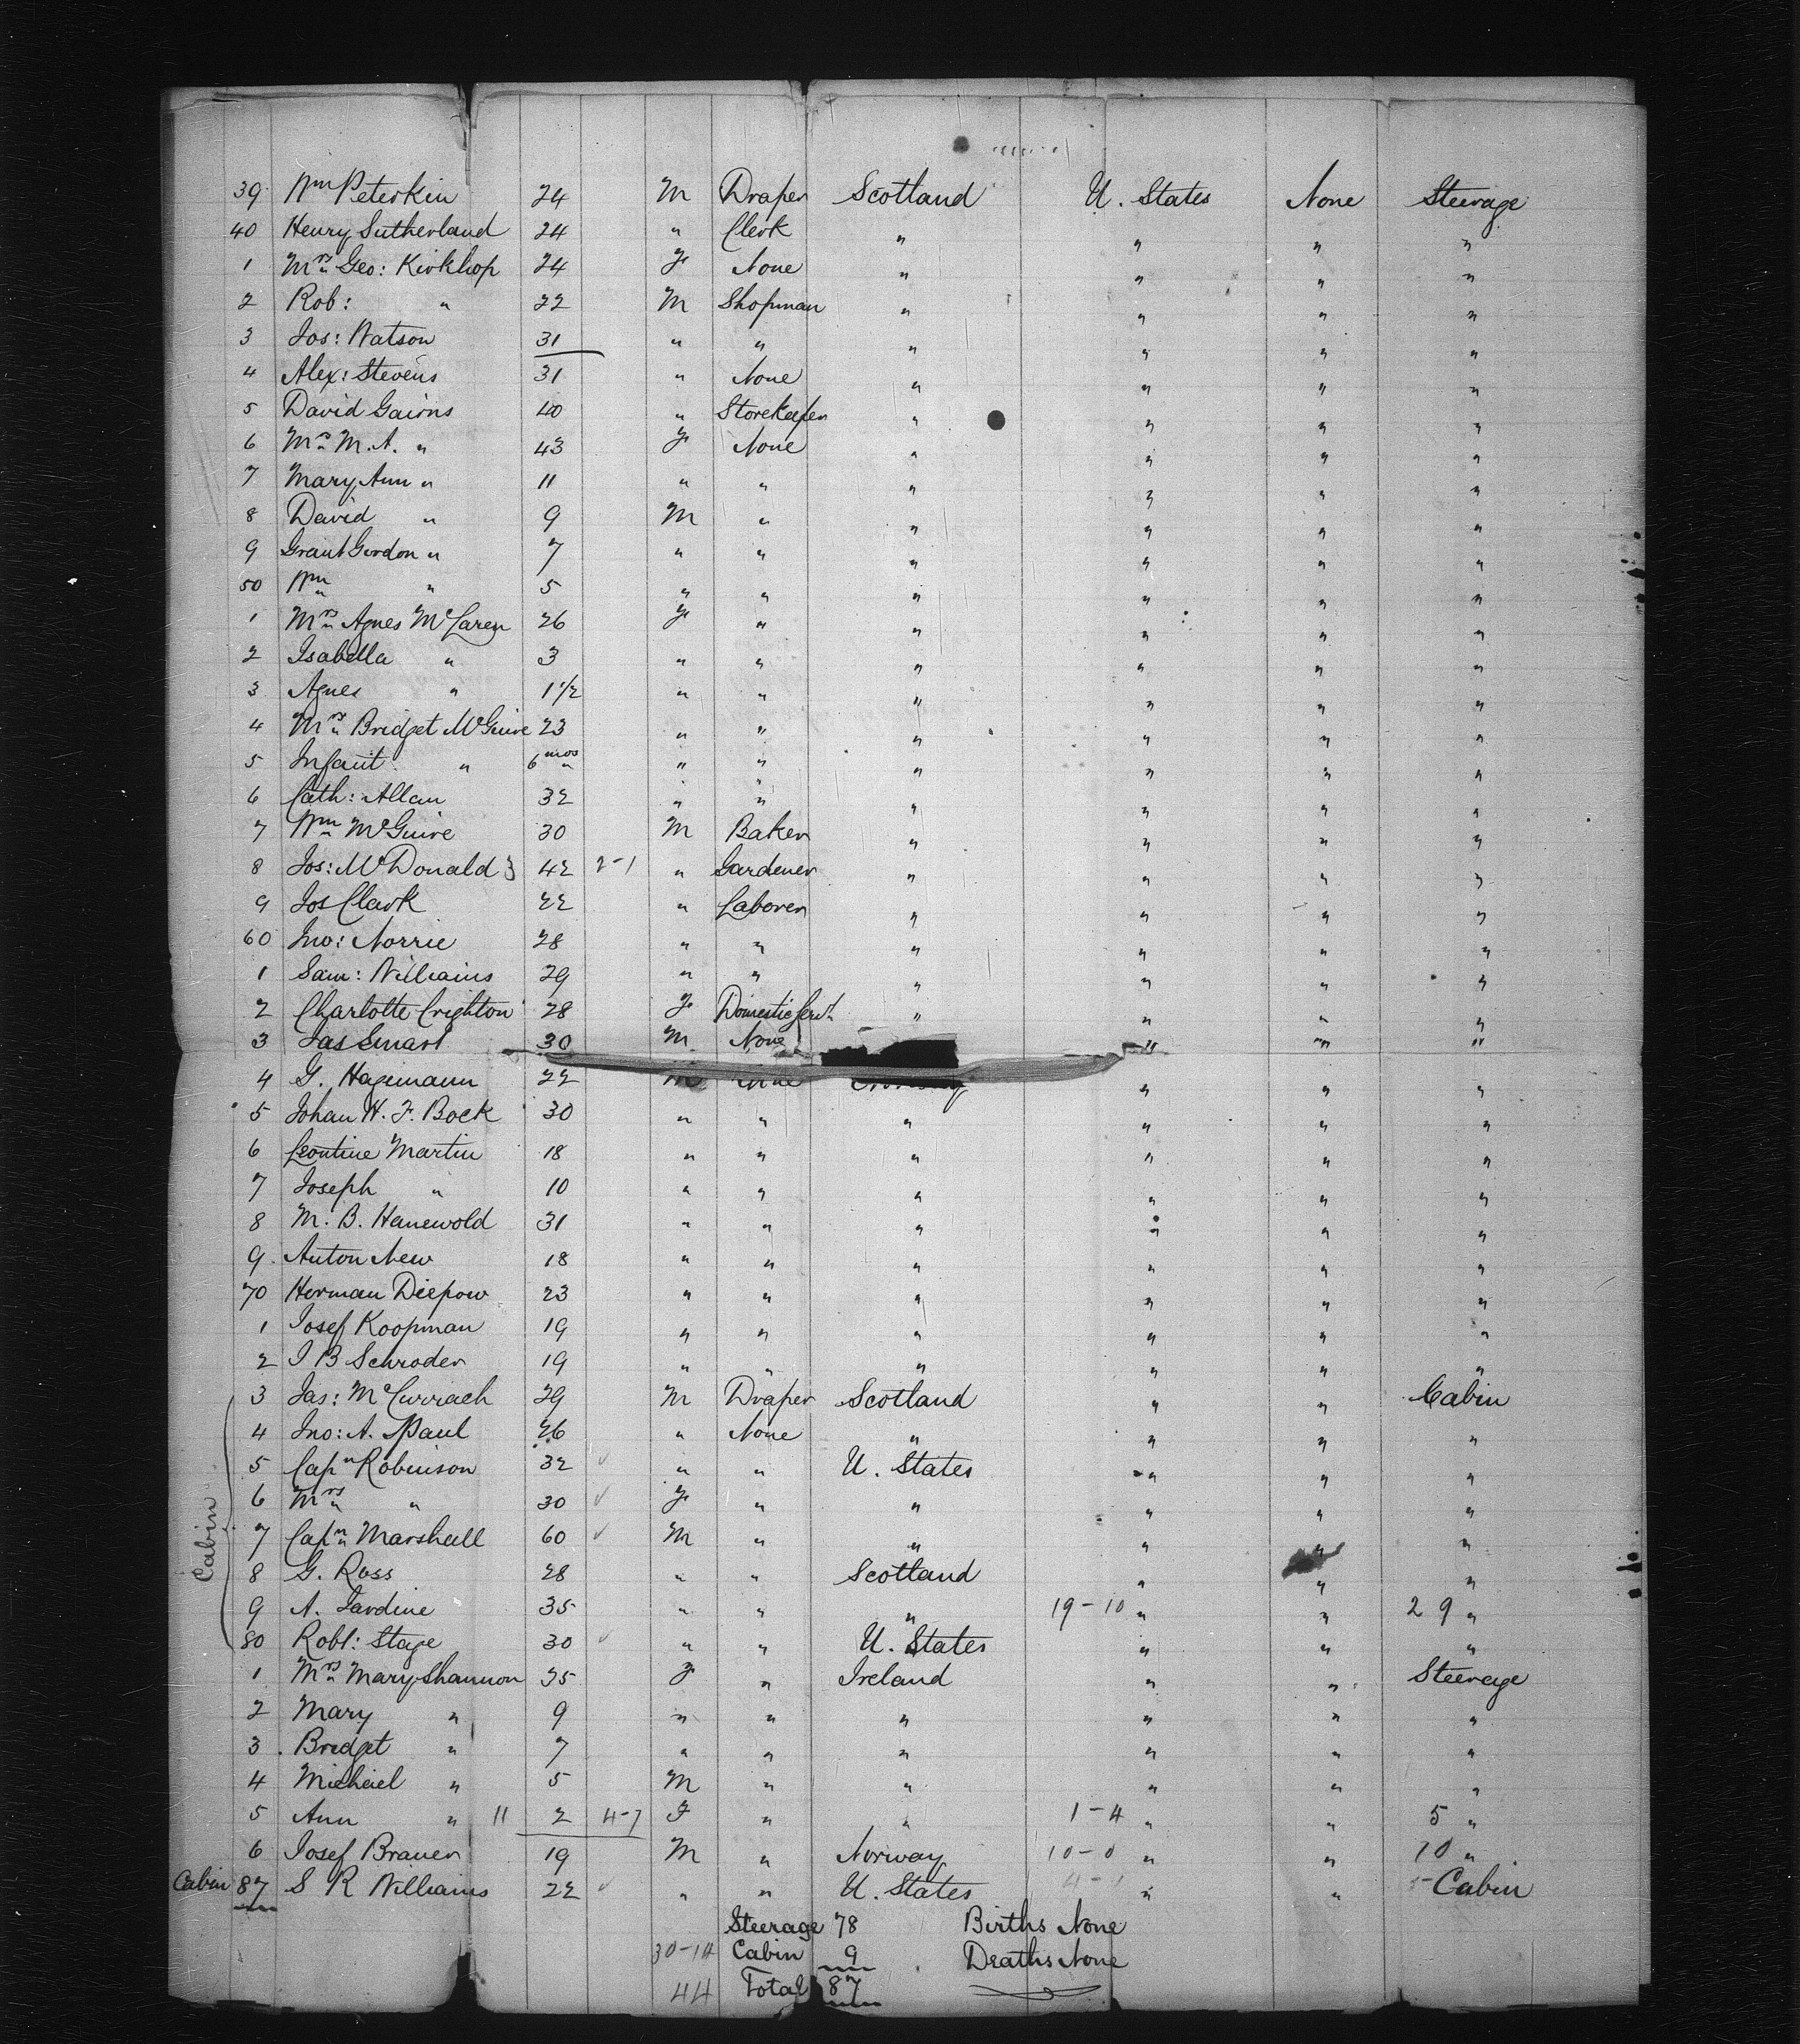 39 Wm Peterkin 24 M Draper Scotland U. States None Steerage
40 Henry Sutherland 24 " Clerk " " " "
1 Mrs Geo: Kirkhop 24 F None " " " "
2 Rob: " 22 M Shopman " " " "
3 Jos: Watson 31 " " " " " "
4 Alex: Stevens 31 " None " " " "
5 David Gairns 40 " Storekeeper " " " "
6 Mrs M. A. " 43 F None " " " "
7 Mary Ann " 11 " " " " " "
8 David " 9 M " " " " "
9 Grant Gordon " 7 " " " " " "
50 Wm " 5 " " " " " "
1 Mrs Agnes McLaren 26 F " " " " "
2 Isabella " 3 " " " " " "
3 Agnes " 1 1/2 " " " " " "
4 Mrs Bridget McGuire 23 " " " " " "
5 Infant " 6 mos " " " " " "
6 Cath: Allan 32 " " " " " "
7 Wm McGuire 30 M Baker " " " "
8 Jos: McDonald } 42 2-1 " Gardener " " " "
9 Jos Clark 22 " Laborer " " " "
60 Jno: Norrie 28 " " " " " "
1 Sam: Williams 29 " " " " " "
2 Charlotte Crighton 28 F Domestic Servt " " " "
3 Jas Smart 30 M None " " "
4 G. Hagemann 22 " " "
5 Johan H. F. Bock 30 " " " " " "
6 Leontine Martin 18 " " " " " "
7 Joseph " 10 " " " " " "
8 M. B. Hanewold 31 " " " " " "
9 Anton New 18 " " " " " "
70 Herman Diepow 23 " " " " " "
1 Josef Koopman 19 " " " " " "
2 J B Schroder 19 " " " " " "
3 Jas: McCurrach 29 M Draper Scotland " " Cabin
4 Jno: A. Paul 26 " None " " " "
5 Capn Robinson 32 ✓ " " U. States " " "
6 Mrs " 30 ✓ F " " " " "
7 Capn Marshall 60 ✓ M " " " " "
Cabin 8 G. Ross 28 " " Scotland " " "
9 A. Jardine 35 " " " 19-10 " " 29 "
80 Robt: Stage 30 ✓ " " U. States " " "
1 Mrs Mary Shannon 35 F " Ireland " " Steerage
2 Mary " 9 " " " " " "
3 Bridget " 7 " " " " " "
4 Michael " 5 M " " " " "
5 Ann " 11 2 4-7 F " " 1-4 " " 5 "
6 Josef Brauer 19 M " Norway 10-0 " " 10 "
Cabin 87 S R Williams 22 ✓ " " U. States 4-1 " " 5 Cabin
Steerage 78 Births None
30-14 Cabin 9 Deaths None
44 Total 87